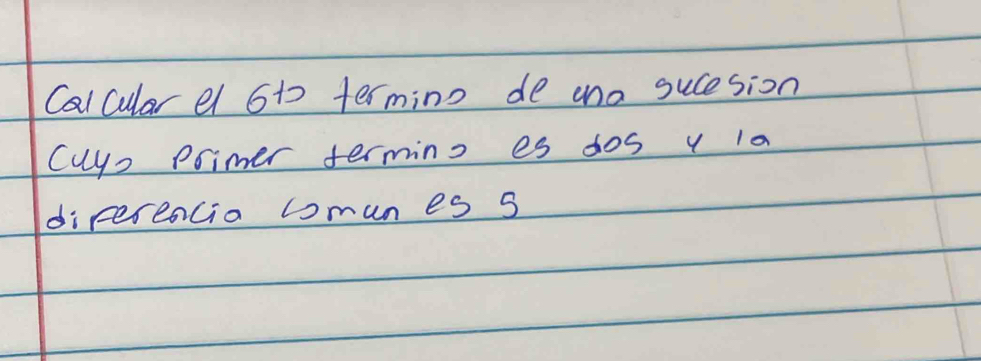 Calcular el 6to termino de una sucesion
cuyo primer termino es dos y la
diferencia comun es 5